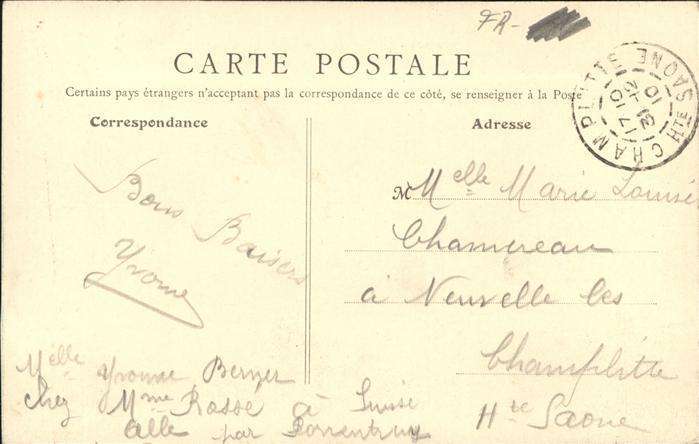 FR-
CARTE POSTALE
Certains pays étrangers n'acceptant pas la correspondance de ce côté, se renseigner à la Poste
Correspondance
Adresse
CHAMPLITTE HTE SAONE
17 10
31 - 12
10
Bons Baisers
Yvonne
Melle Yvonne Berner
chez Mme Rossé à Suisse
Alle par Porrentruy
M Melle Marie Louise
Chamereau
à Neuvelle les
Champlitte
Hte Saone